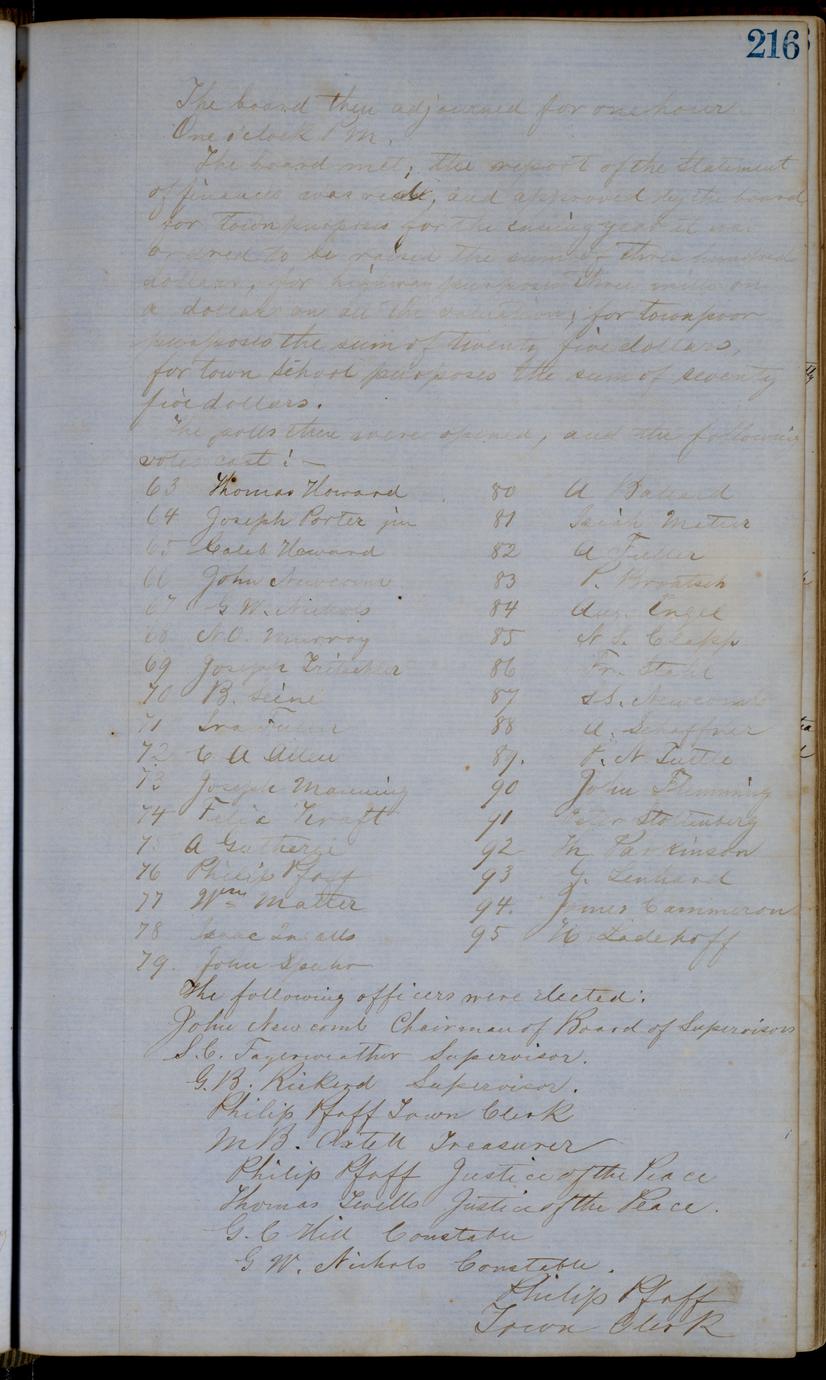 216
The board then adjourned for one hour
One o'clock P M.
The board met; the report of the statement
of finances was made, and approved by the board
for town purposes for the ensuing year it was
ordered to be raised the sum of three hundred
dollars, for highway purposes three mills on
a dollar on all the valuation; for town poor
purposes the sum of twenty five dollars,
for town school purposes the sum of seventy
five dollars.
The polls then were opened, and the following
votes cast: —
63 Thomas Howard 80 A Ballard
64 Joseph Porter jun 81 Isaiah
65 Caleb Howard 82 A Fuller
66 John Newcomb 83 P.
67 G W. Nichols 84 Aug. Engel
68 N. O. Murray 85 N. S. Clapp
69 Joseph Tritschler 86 Fr. Stahl
70 B. 87 S S. Newcomb
71 Ira 88 A. Schaffner
72 C A Allen 89. P. N Tuttle
73 Joseph Manning 90 John Flemming
74 Felix Kraft 91 Peter Stoltenberg
75 A Gutherie 92 Th Parkinson
76 Philip Pfaff 93 G. Lenhard
77 Wm Matter 94. James Cammeron
78 Isaac Ingalls 95 H. Ladehoff
79. John
The following officers were elected:
John Newcomb Chairman of Board of Supervisors
S. C. Fayerweather Supervisor.
G. B. Rickerd Supervisor.
Philip Pfaff Town Clerk
M B. Axtell Treasurer
Philip Pfaff Justice of the Peace
Thomas Jewells Justice of the Peace.
G. C Hill Constable
G W. Nichols Constable.
Philip Pfaff
Town Clerk